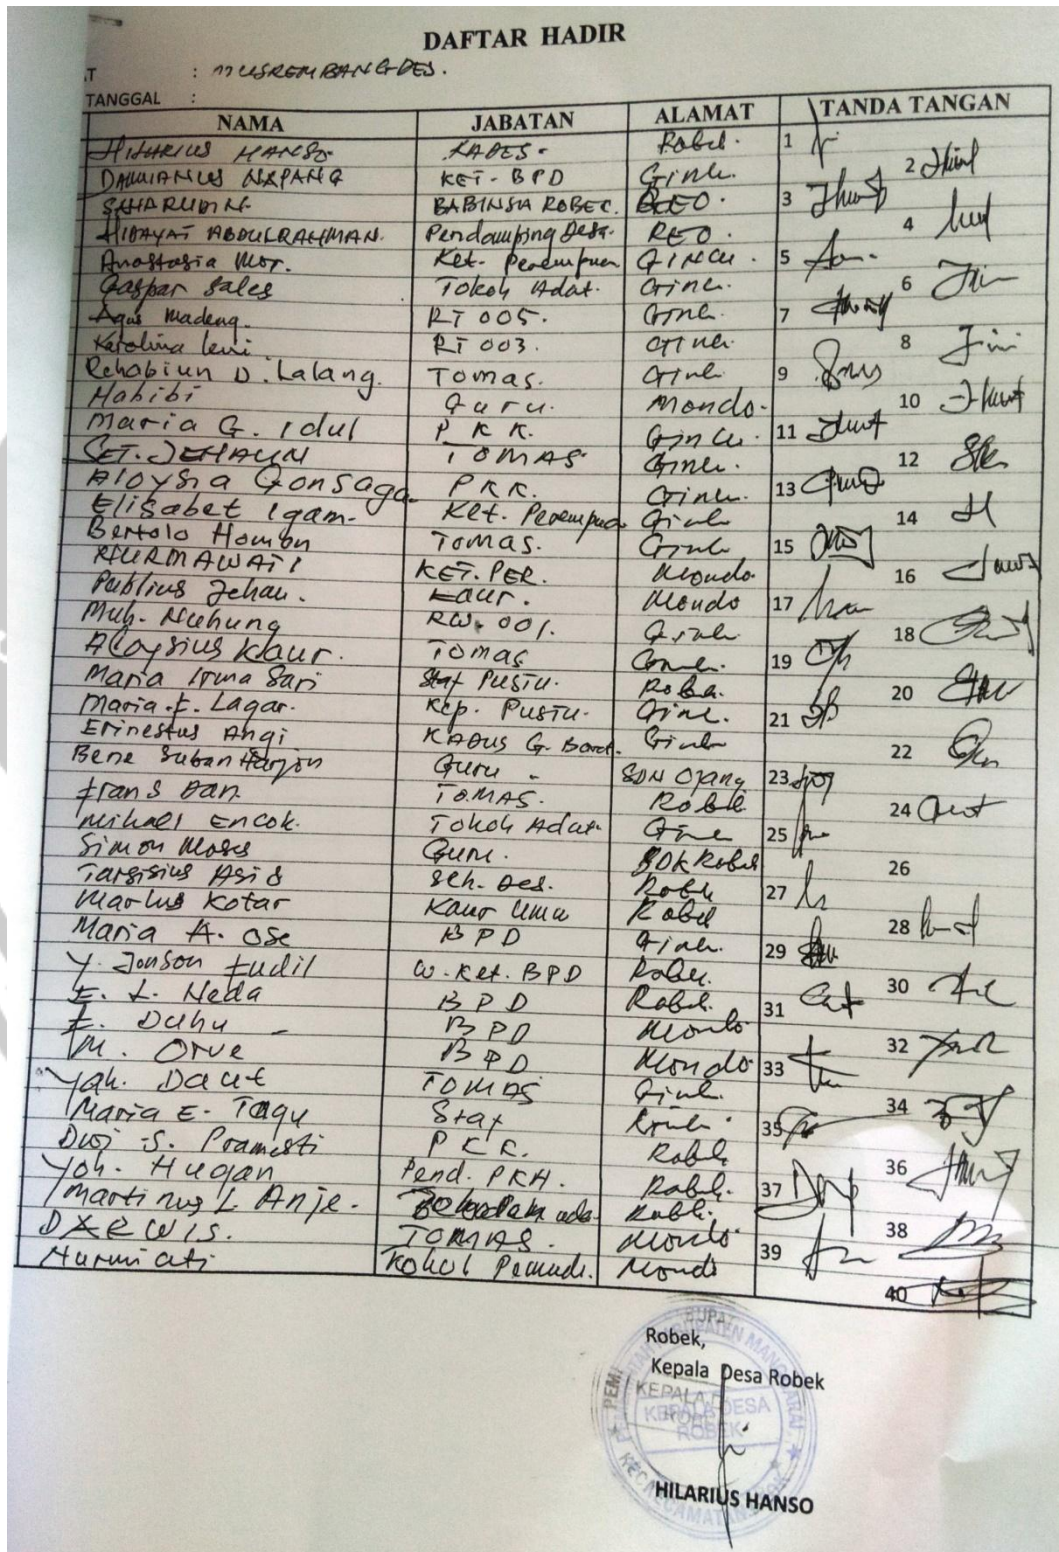 DAFTAR HADIR
T : MUSREMBANGDES.
TANGGAL :
NAMA JABATAN ALAMAT TANDA TANGAN
HILARIUS HANSO KADES. Robek. 1
DAMIANUS NAPANG KET. BPD Gincu. 2
SAHARUDIN. BABINSA ROBEC. REO. 3
HIDAYAT ABDULRAHMAN. Pendamping Desa. REO. 4
Anastasia Mor. Ket. Perempuan GINCU. 5
Gaspar Sales Tokoh Adat. Gincu. 6
Agus Madeng. RT 005. Gincu. 7
Karolina leni RT 003. Gincu. 8
Rehabiun D. Lalang. Tomas. Gincu 9
Habibi Guru. Mondo. 10
Maria G. Idul P K K. Gincu. 11
TOMAS Gincu. 12
Aloysia Gonsaga PKK. Gincu. 13
Elisabet Igam. Ket. Perempuan Gincu 14
Bertolo Homon Tomas. Gincu 15
NURMAWATI KET. PER. Mondo. 16
Publius Jehau. Kaur. Mondo 17
Muh. Nuhung RW. 001. Gincu 18
Aloysius Kaur. Tomas Gincu. 19
Maria Irma Sari Staf Pustu. Robek. 20
Maria.F. Lagar. Kep. Pustu. Gincu. 21
Erinestus Angi KADUS G. Barat. Gincu 22
Bene Suban Guru. SDN Ojang 23
Frans Dan TOMAS. Robek 24
Mihael Encok. Tokoh Adat. Gincu 25
Simon Moses Guru. SDK Robek 26
Tarsisius Asis Sek. Des. Robek 27
Markus Kotar Kaur Umu Robek 28
Maria A. Ose BPD Gincu. 29
Y. Jonson Fudil W. Ket. BPD Robek. 30
F. L. Neda BPD Robek. 31
F. Duhu BPD Mondo 32
M. Orve BPD Mondo 33
Yoh. Daut TOMAS Gincu. 34
Maria E. Tagu Staf Gincu. 35
Dwi .S. Pramesti P K K. Robek 36
Yoh. Hugan Pend. PKH. Robek. 37
Martinus L Anje. Robek. 38
DARWIS. TOMAS. Mondo 39
Nurmiati Mondo 40
Robek,
Kepala Desa Robek
KEPALA DESA
ROBEK
HILARIUS HANSO